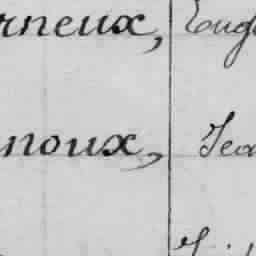 rneux, Eug
noux, Jea